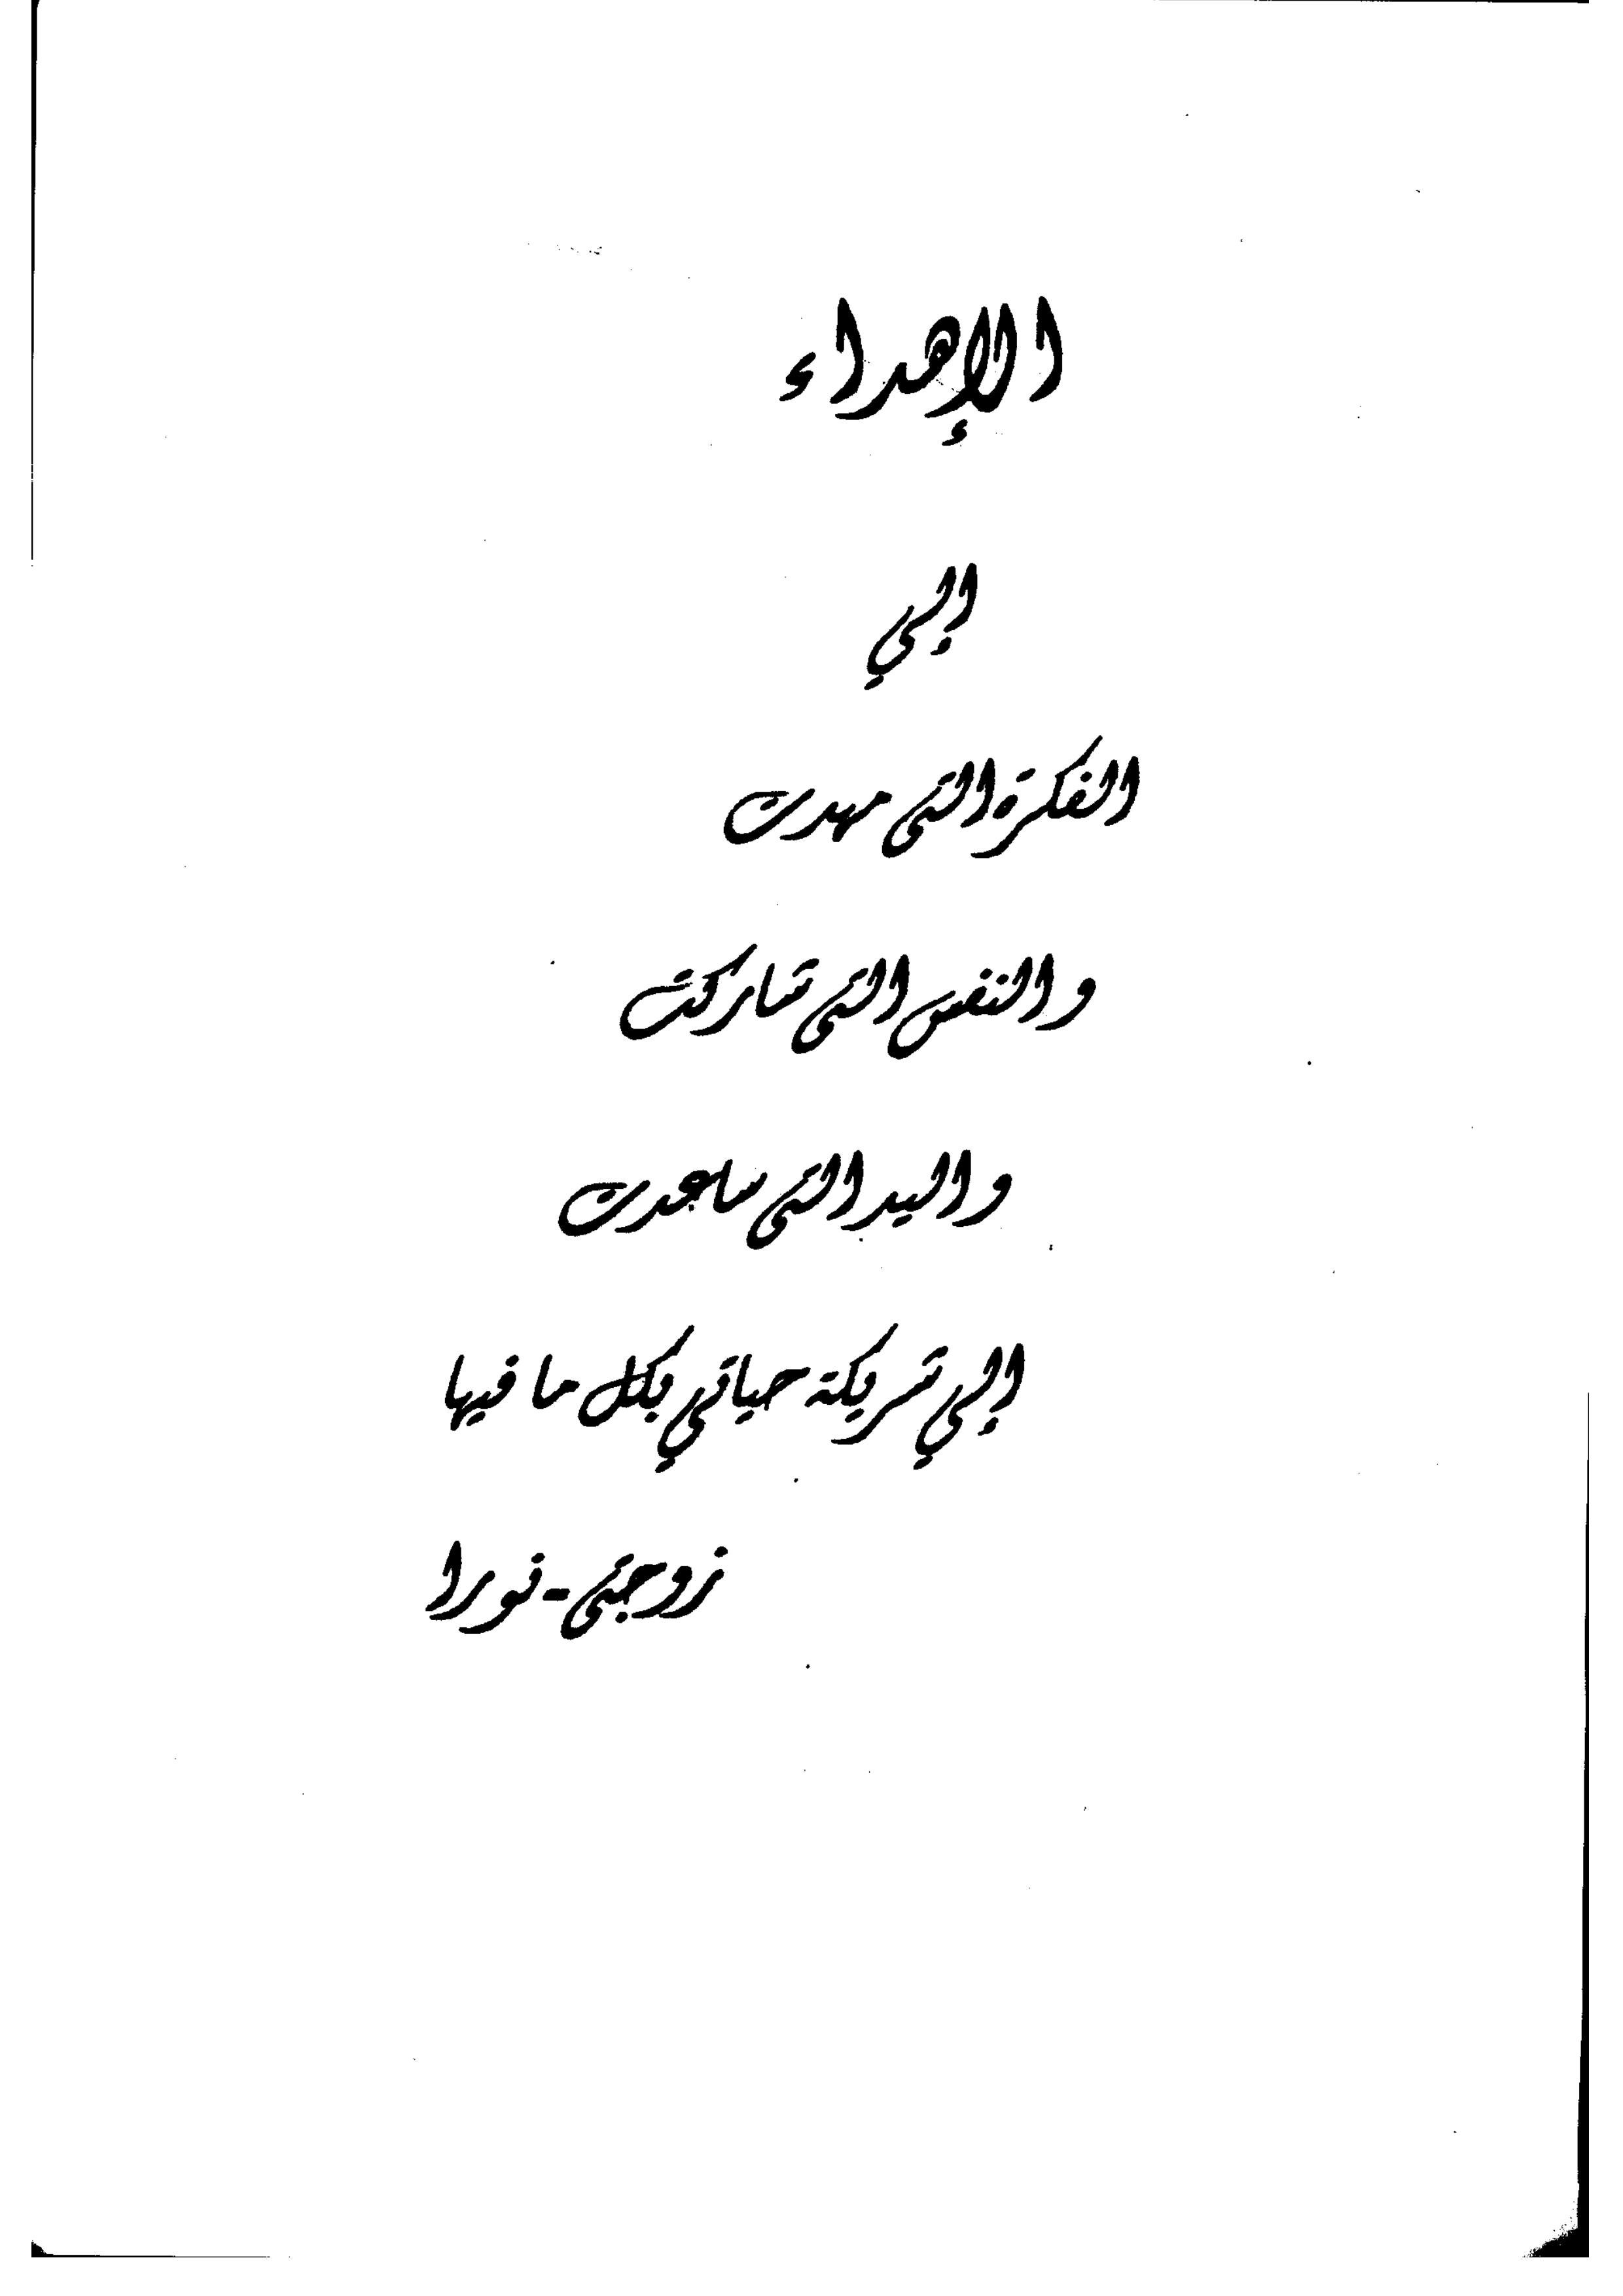 الإهداء
إلي
الفكرة التى مهدت
والنفس التى شاركت
واليد التى ساعدت
إلي شريكة حياتي بكل ما فيها
زوجتى - نورا